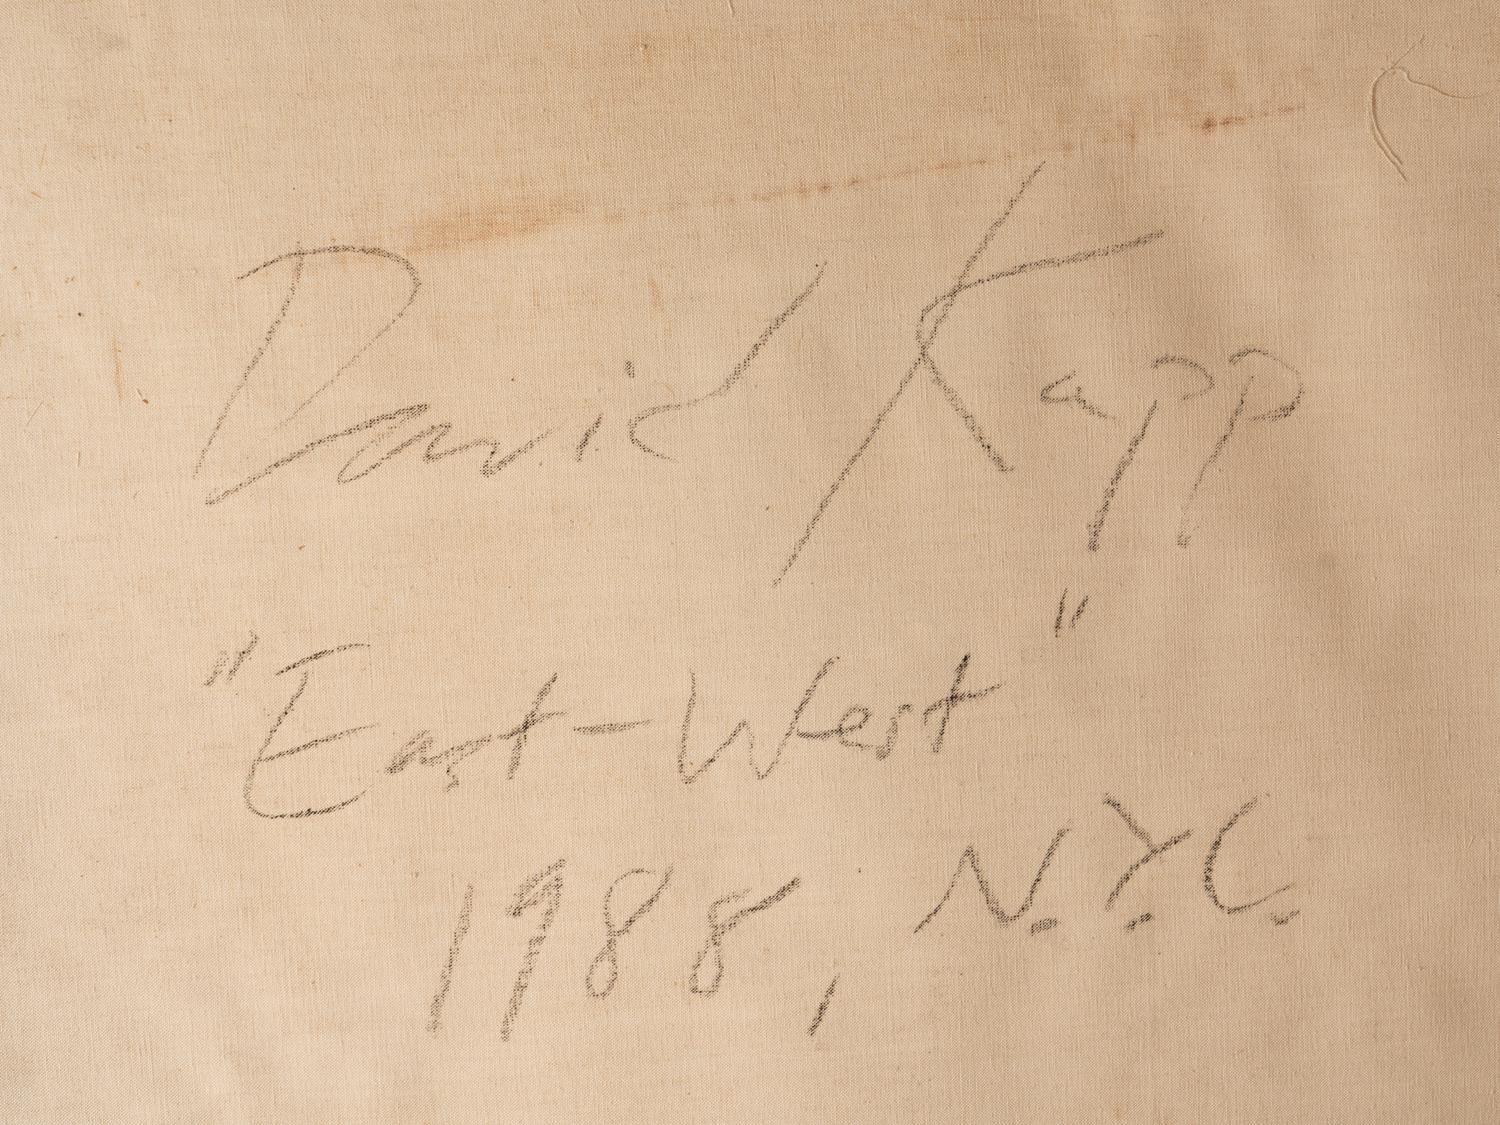 David Kapp
"East-West"
1988, N.Y.C.